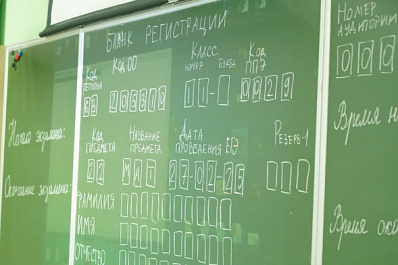 БЛАНК РЕГИСТРАЦИИ
Код региона Код ОО Класс номер буква Код ППЭ
32 205319 11- 0029
Код предмета Название предмета Дата проведения ЕГЭ Резерв-1
22 МАТ 27-02-25
ФАМИЛИЯ
ИМЯ
ОТЧЕСТВО
Начало экзамена:
Окончание экзамена:
НОМЕР АУДИТОРИИ
Время
Время